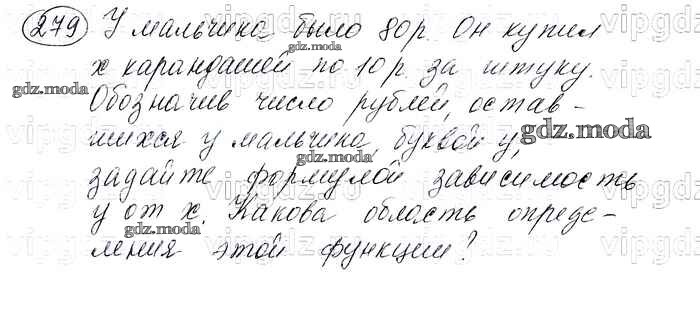 279 У мальчика было 80 р. Он купил
х карандашей по 10 р. за штуку.
Обозначив число рублей, остав-
шихся у мальчика, буквой у,
задайте формулой зависимость
у от х. Какова область опреде-
ления этой функции?
gdz.moda
gdz.moda
gdz.moda
gdz.moda
gdz.moda
gdz.moda
gdz.moda